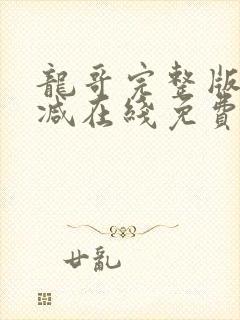 龍哥完整版
减在綫免費
廿亂